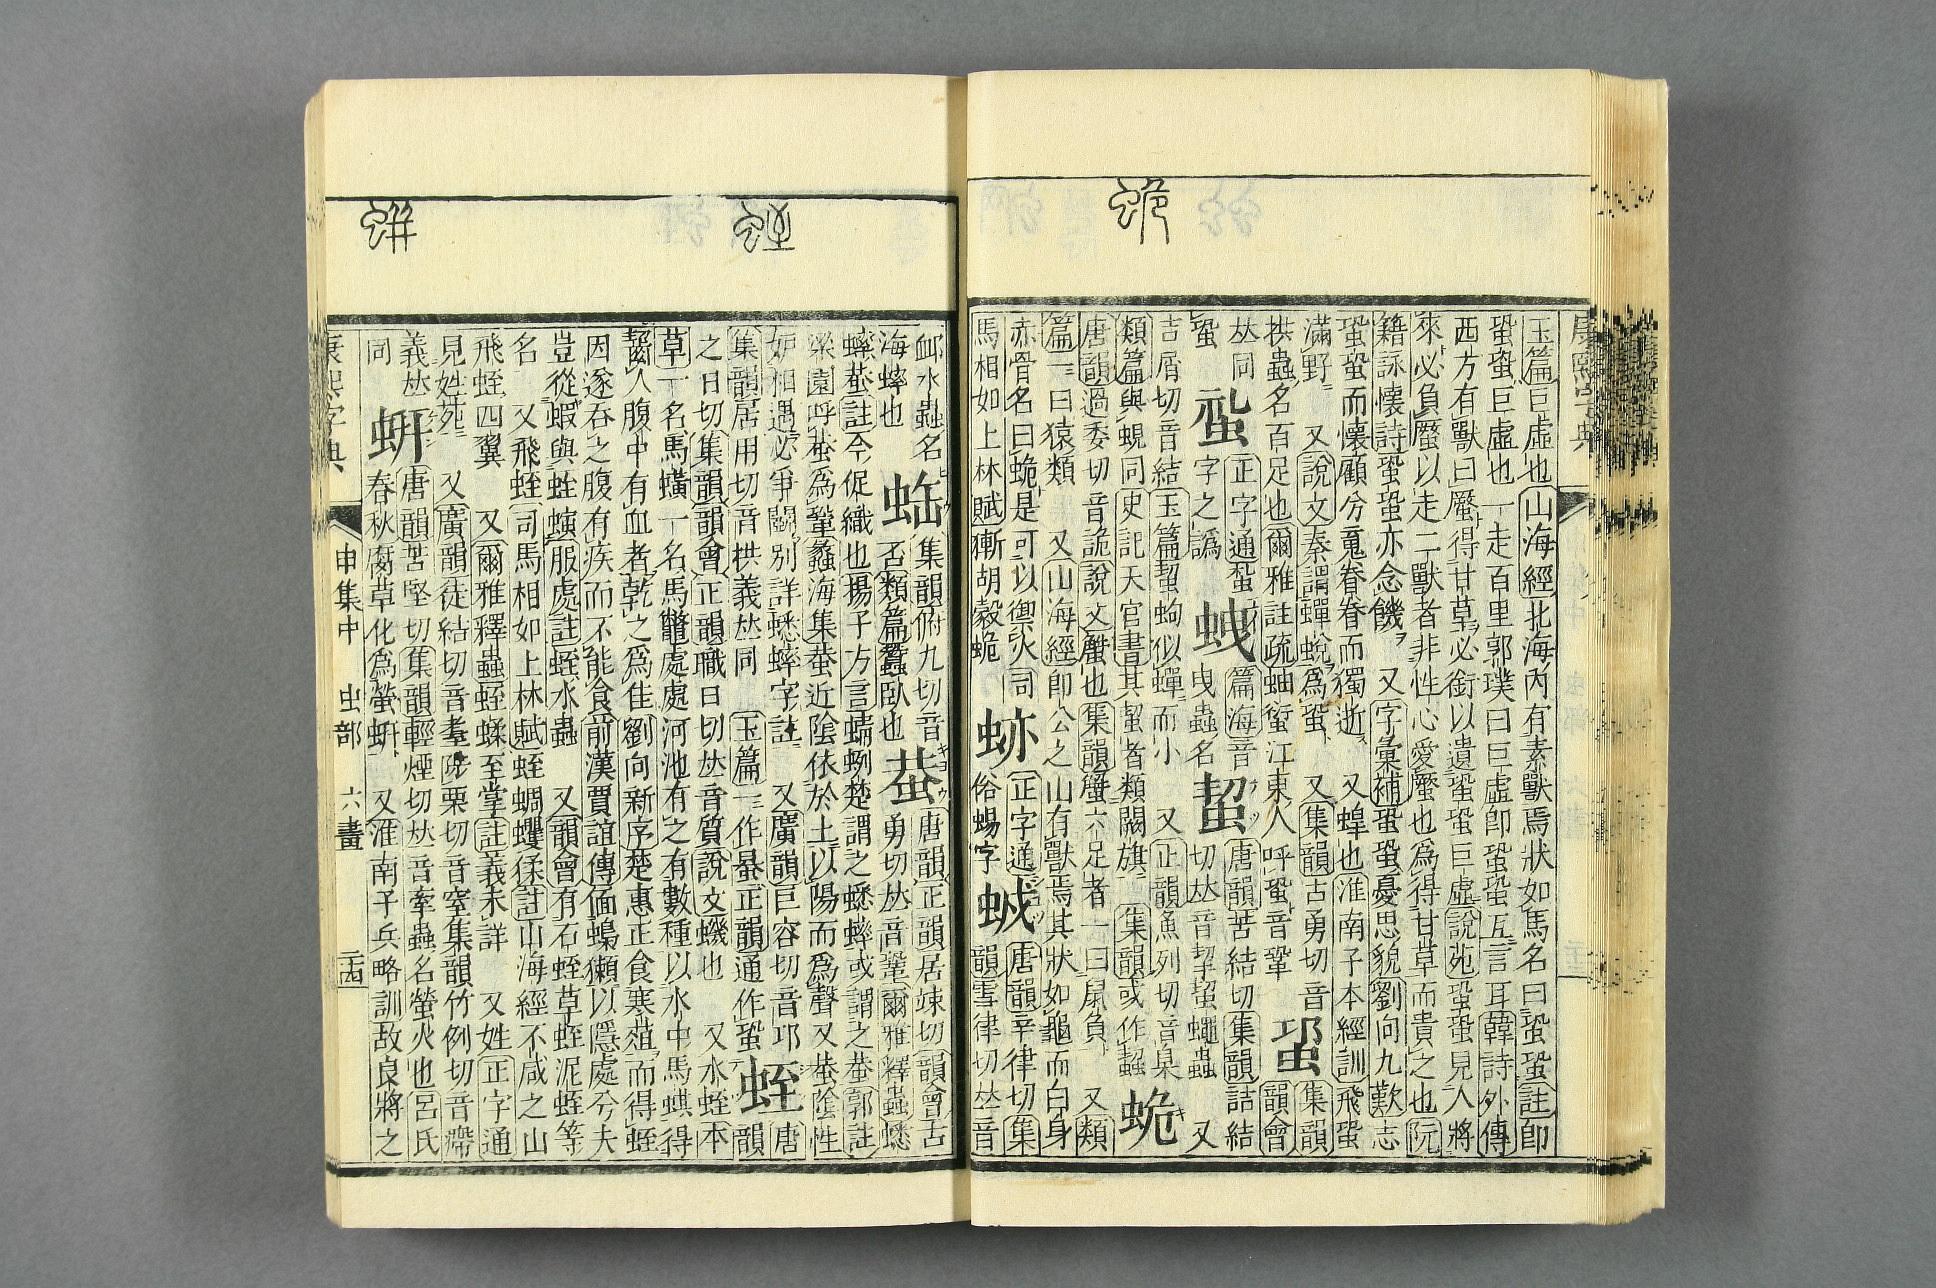 蛫
玉篇巨虛也山海經北海內有素獸焉狀如馬名曰蛩蛩註卽
蛩蛩巨虛也一走百里郭璞曰巨虛卽蛩蛩互言耳韓詩外傳
西方有獸曰蟨得甘草必銜以遺蛩蛩巨虛說苑蛩蛩見人將
來必負蟨以走二獸者非性心愛蟨也爲得甘草而貴之也阮
籍詠懷詩蛩蛩亦念饑 又字彙補蛩蛩憂思貌劉向九歎志
蛩蛩而懷顧兮䰟眷眷而獨逝 又蝗也淮南子本經訓飛蛩
滿野 又說文秦謂蟬蛻爲蛩 又集韻古勇切音 蛩 集韻
拱蟲名百足也爾雅註疏蚰蜒江東人呼蛩音鞏 韻會
𠀤同 正字通蛩 篇海音 唐韻苦結切集韻詰結
蛩 字之譌 蛦 曳蟲名 蛪 切𠀤音挈蛪蠅蟲 又
吉屑切音結玉篇蛪蚼似蟬而小 又正韻魚列切音臬
類篇與蜺同史記天官書其蛪者類闕旗 集韻或作蛪 蛫
唐韻過委切音詭說文蟹也集韻蟹六足者一曰鼠負 又類
篇一曰猿類 又山海經卽公之山有獸焉其狀如龜而白身
赤骨名曰蛫是可以禦火司 正字通 唐韻辛律切集
馬相如上林賦獑胡豰蛫 俗蜴字 韻雪律切𠀤音
蛭
蚈
䘏水蟲名 集韻俯九切音 唐韻正韻居竦切韻會古
海蟀也 缶類篇蠶臥也 蛬 勇切𠀤音鞏爾雅釋蟲蟋
蟀蛬註今促織也揚子方言蜻蛚楚謂之蟋蟀或謂之蛬郭註
梁園呼蛬爲鞏蟲海集蛬近陰依於土以陽而爲聲又蛬陰性
妒相遇必爭鬭別詳蟋蟀字註 又廣韻巨容切音邛 唐
集韻居用切音拱義𠀤同 玉篇一作㬥正韻通作蛩 蛭 韻
之日切集韻韻會正韻職日切𠀤音質說文蟣也 又水蛭本
草一名馬蟥一名馬鼈處處河池有之有數種以水中馬蜞得
齧人腹中有血者乾之爲佳劉向新序楚惠正食寒葅而得蛭
因遂吞之腹有疾而不能食前漢賈誼傳偭蟂獺以隱處兮夫
豈從蝦與蛭螾服虔註蛭水蟲 又韻會有石蛭草蛭泥蛭等
名 又飛蛭司馬相如上林賦蛭蜩蠼猱註山海經不咸之山
飛蛭四翼 又爾雅釋蟲蛭蝚至掌註義未詳 又姓正字通
見姓苑 又廣韻徒結切音耊陟栗切音窒集韻竹例切音㿃
義𠀤 唐韻苦堅切集韻輕煙切𠀤音牽蟲名螢火也呂氏
同 蚈 春秋腐草化爲螢蚈 又淮南子兵略訓故良將之
康熙字典 申集中 虫部 六畫 二十四